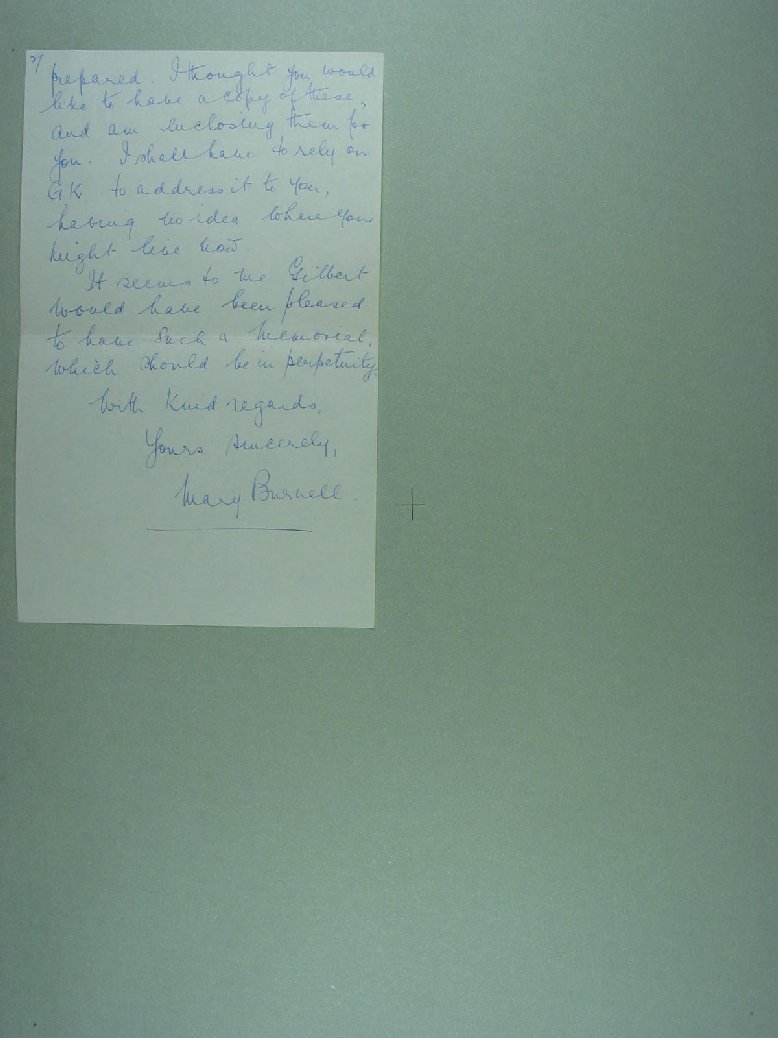 2/
prepared. I thought you would
like to have a copy of these,
and am enclosing them for
you. I shall have to rely on
GK to address it to you,
having no idea where you
might live now.
It seems to me Gilbert
would have been pleased
to have such a memorial,
which should be in perpetuity.
With Kind regards,
Yours sincerely,
Mary Burnell.